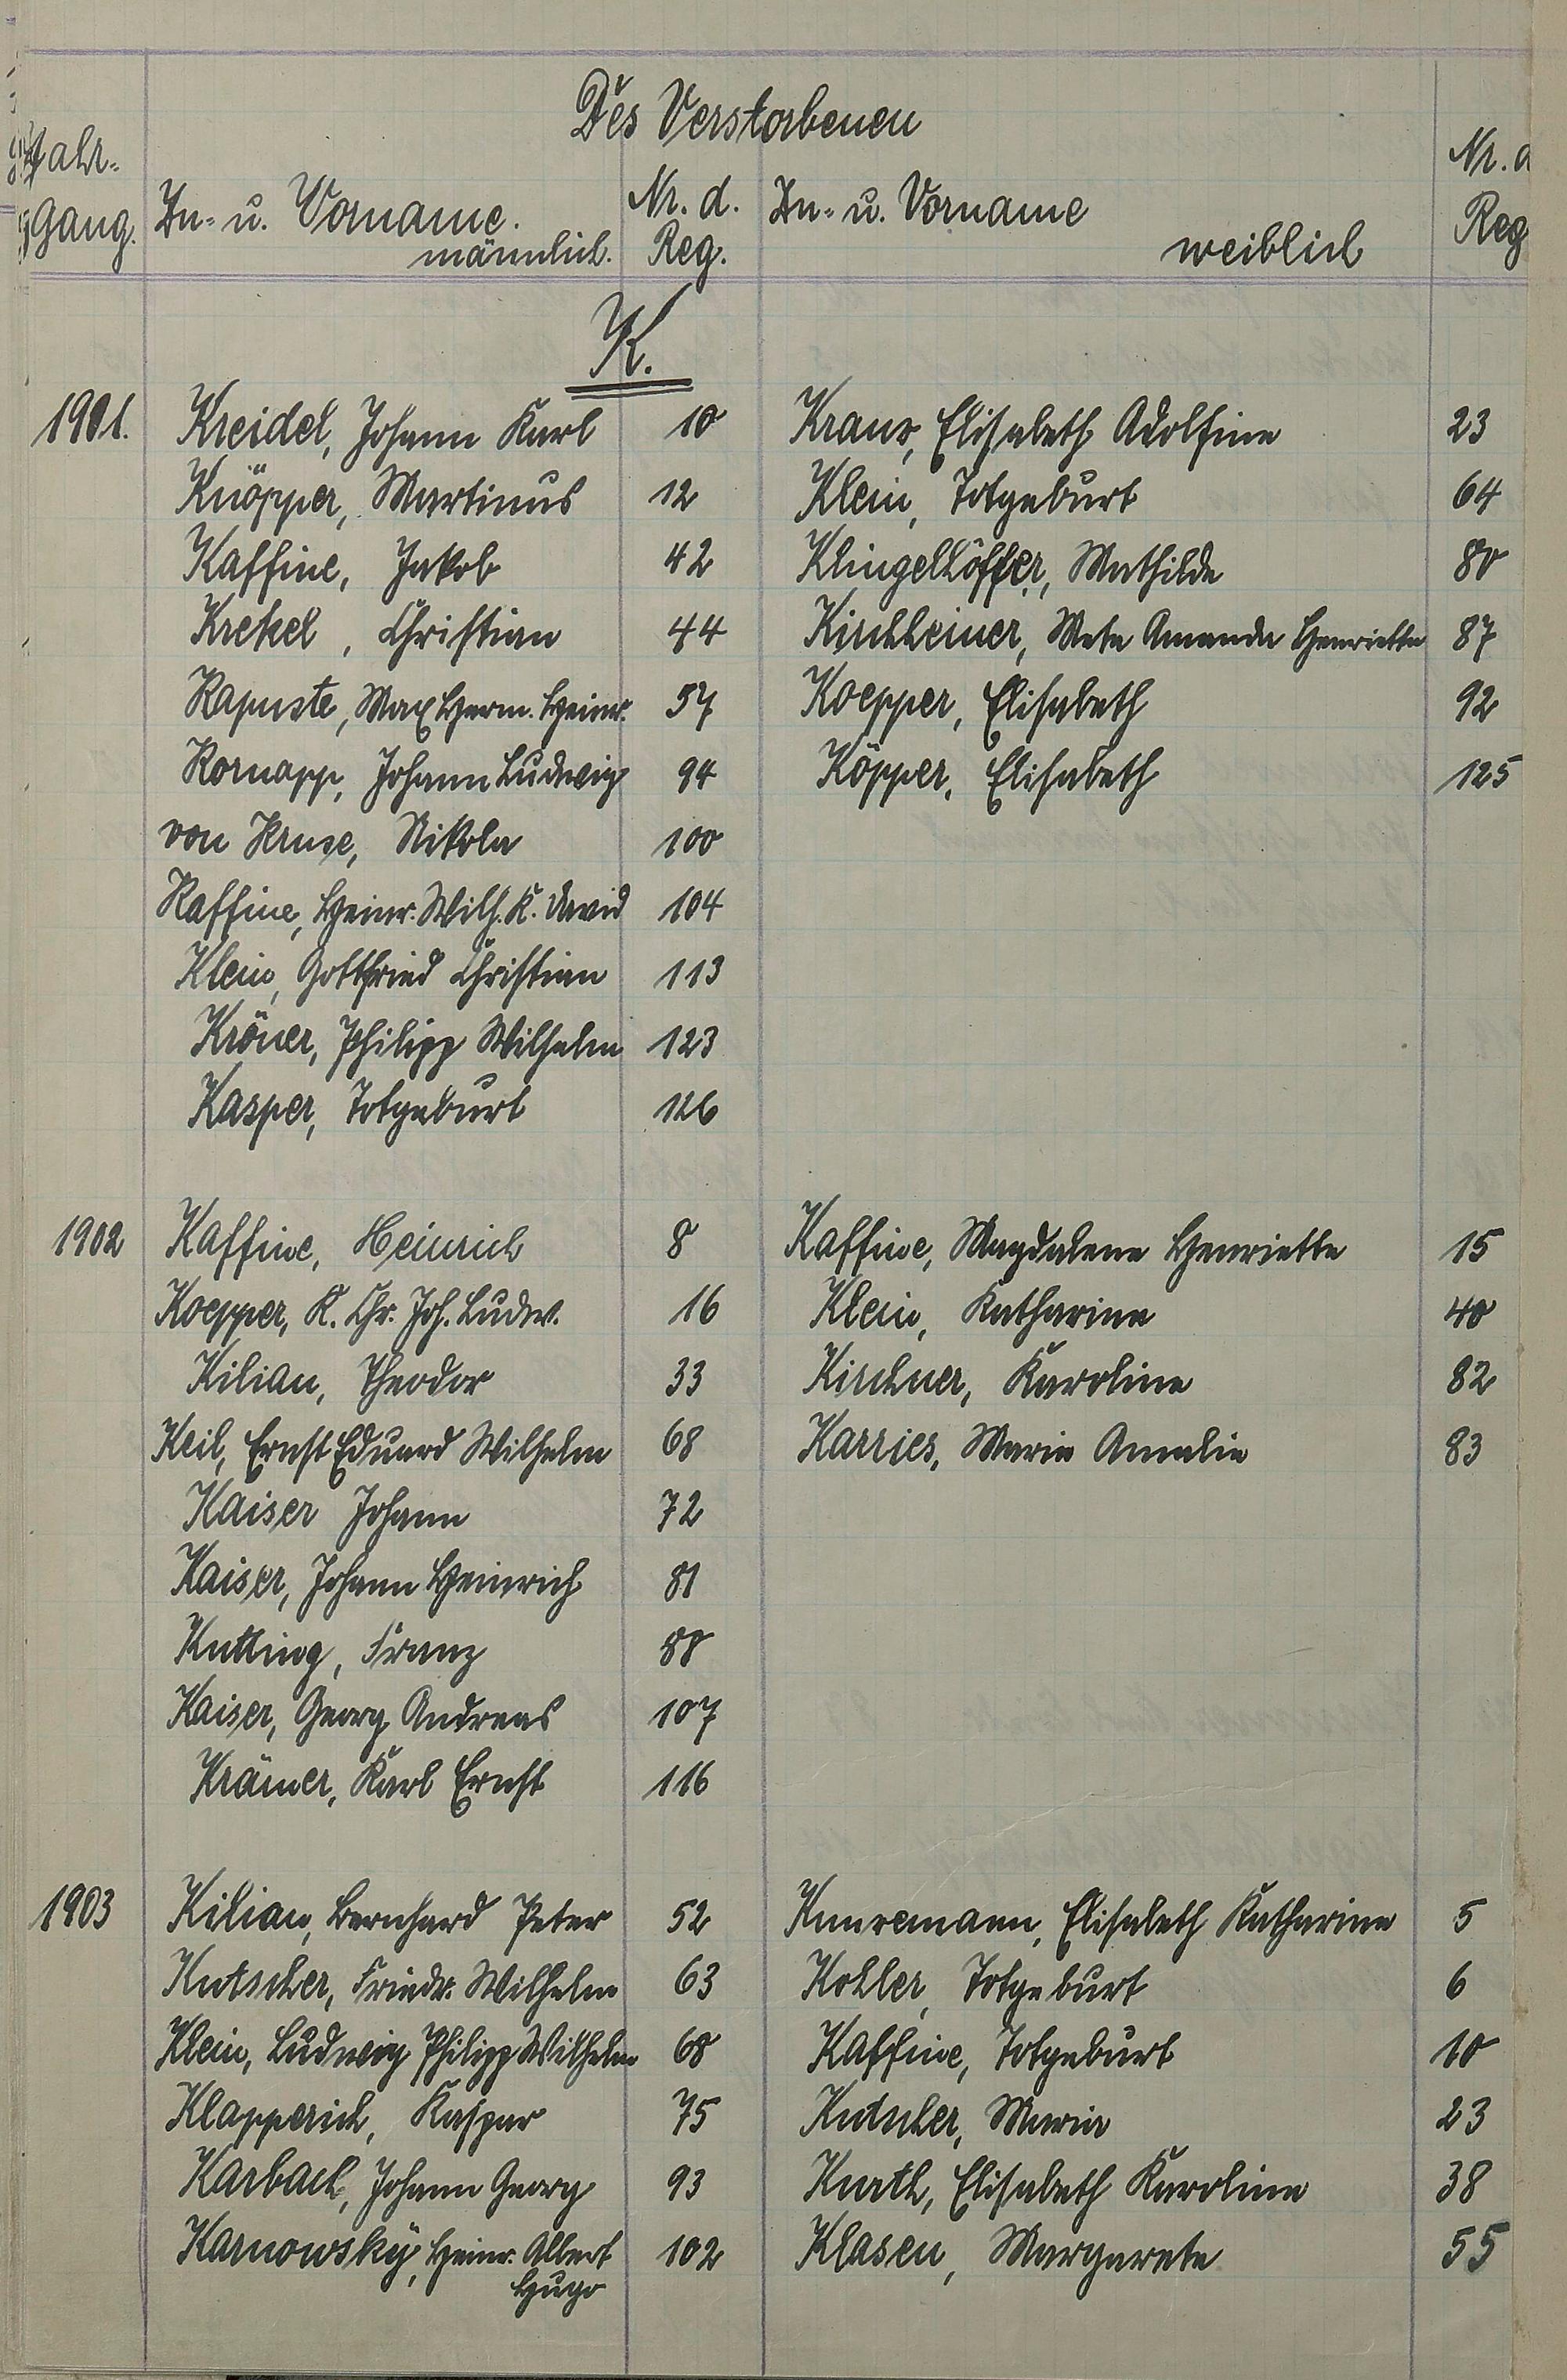 Des Verstorbenen
Jahr-
Gang.
Zu- u. Vorname.
männlich.
Nr. d.
Reg.
Zu- u. Vorname
weiblich
Nr. d
Reg
K.
1901. Kreidel, Johann Karl 10 Kraus, Elisabeth Adolfine 23
Knöpper, Martinus 12 Klein, Totgeburt 64
Kaffine, Jakob 42 Klingelhöffer, Mathilde 80
Krekel, Christian 44 Kirchheiner, Meta Amanda Henriette 87
Kapuste, Max Herm. Heinr. 57 Koepper, Elisabeth 92
Kornapp, Johann Ludwig 94 Köpper, Elisabeth 125
von Kruse, Nikola 100
Kaffine, Heinr. Wilh. K. David 104
Klein, Gottfried Christian 113
Kröner, Philipp Wilhelm 123
Kasper, Totgeburt 126
1902 Kaffine, Heinrich 8 Kaffine, Magdalene Henriette 15
Koepper, K. Chr. Joh. Ludw. 16 Klein, Katharina 40
Kilian, Theodor 33 Kirchner, Karoline 82
Keil, Ernst Eduard Wilhelm 68 Karries, Marie Amalie 83
Kaiser Johann 72
Kaiser, Johann Heinrich 81
Kutting, Franz 88
Kaiser, Georg Andreas 107
Krämer, Karl Ernst 116
1903 Kilian, Bernhard Peter 52 Elisabeth Katharina 5
Kutscher, Friedr. Wilhelm 63 Kohler, Totgeburt 6
Klein, Ludwig Philipp Wilhelm 68 Kaffine, Totgeburt 10
Klapperich, Kaspar 75 Kutscher, Maria 23
Karbach, Johann Georg 93 Kurth, Elisabeth Karoline 38
Karnowsky, Heinr. Albert 102 Klasen, Margarete 55
Hugo